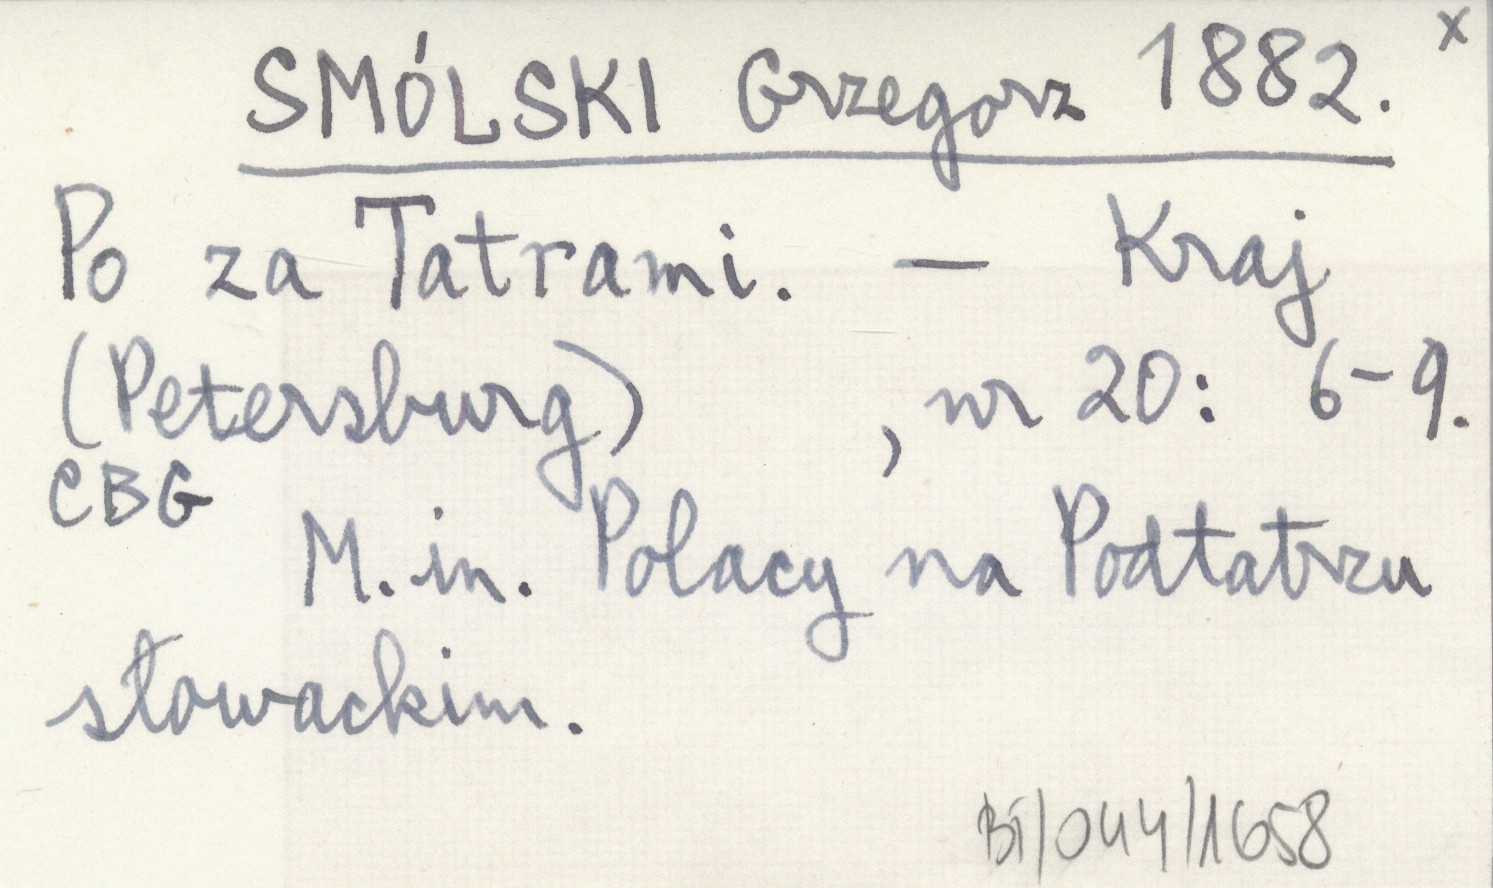 SMÓLSKI Grzegorz 1882. x
Po za Tatrami. — Kraj
(Petersburg) , nr 20: 6-9.
CBG
M. in. Polacy na Podtatrzu
słowackim.
BI/044/1658